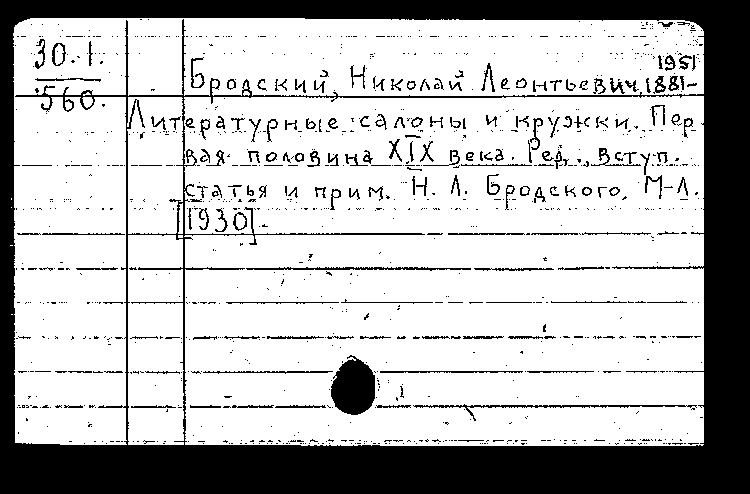 30.1.
560.
1951
Бродский, Николай Леонтьевич, 1881-
Литературные салоны и кружки. Пер-
вая половина XIX века. Ред., вступ.
статья и прим. Н. Л. Бродского. М-Л.
[1930].